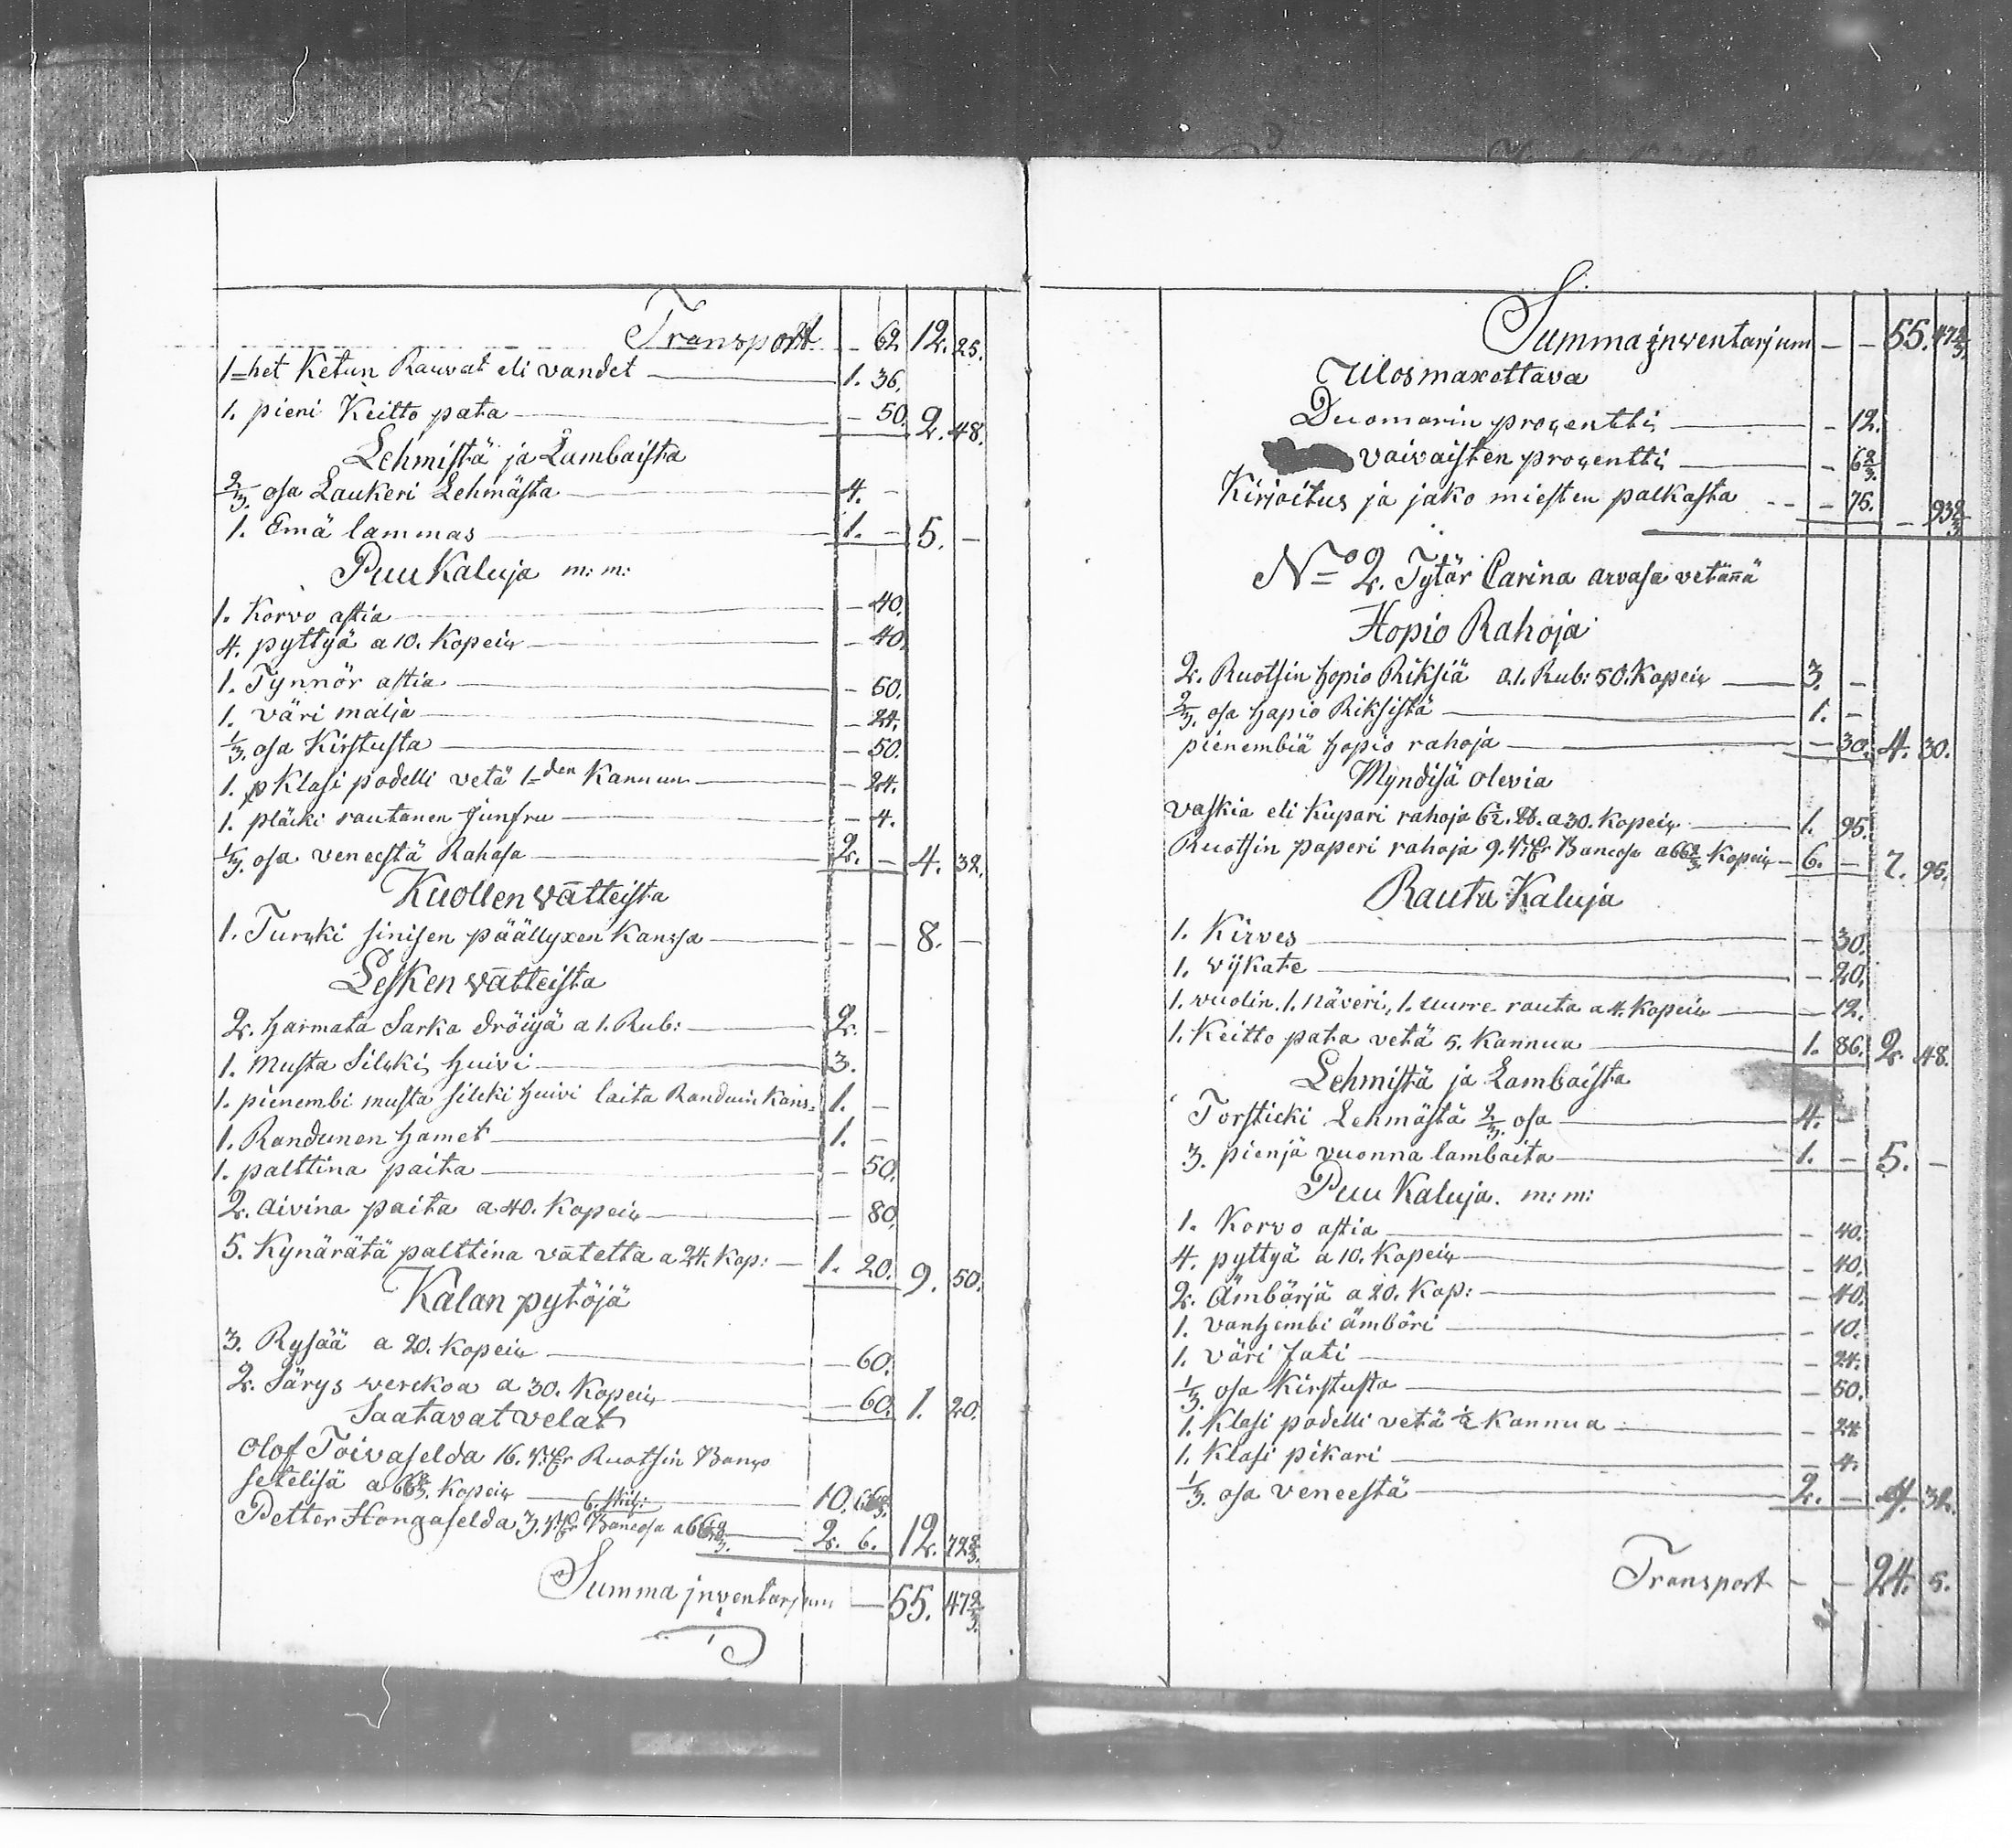 Transport — 62. 12. 25.
1=het Ketun Rauvat eli vandet — 1. 36.
1. pieni Keitto pata — 50. 2. 48.
Lehmistä ja Lambaista
2/3. osa Laukeri Lehmästa — 4. —
1. Emä lammas — 1. — 5. —
Puu Kaluja m: m:
1. Korvo astia — 40.
4. pyttyä a 10. Kopeiq — 40.
1. Tynnör astia — 50.
1. väri malja — 24.
1/3. osa Kirstusta — 50.
1. p Klasi podelli vetä 1=den Kannun — 24.
1. pläcki rautanen junfru — 4.
1/3. osa veneestä Rahasa — 2. — 4. 32.
Kuollen vātteista
1. Turcki sinisen päällyxen Kanssa — — 8. —
Lesken vātteista
2. harmata Sarka dröijyä a 1. Rub: — 2. —
1. Musta Silcki huivi — 3.
1. pienembi musta silcki huivi laita Randuin Kans: 1. —
1. Randunen hamet — 1. —
1. palttina paita — 50.
2. aivina paita a 40. Kopeiq — 80.
5. Kynärätä palttina vātetta a 24. Kop: — 1. 20. 9. 50.
Kalan pytöjä
3. Rysää a 20. Kopeiq — 60.
2. Särys verckoa a 30. Kopeiq — 60. 1. 20.
Saatavat velat
Olof Toivaselda 16. Ruotsin Banco
setelisä a 66 2/3. Kopeiq — 10. 66 2/3.
6. skil:
Petter Hongaselda 3. Bancosa a 66 2/3. — 2. 6. 12. 72 2/3.
Summa jnventarjum — 55. 47 2/3.
Summa jnventarjum — — 55. 47 2/3.
Ulosmaxettava
Duomarin procentti — 12.
vaivaisten procentti — 6 2/3.
Kirjoitus ja jako miesten palkasta — 75. — 93 2/3
No 2. Tytär Carina arvasa vetānā
Hopio Rahoja
2. Ruotsin hopio Riksiä a 1. Rub: 50. Kopeiq — 3. —
2/3. osa hapio Riksistä — 1. —
pienembiä hopio rahoja — 30. 4. 30.
Myndisä olevia
vaskia eli Kupari rahoja 6 1/2. ℔. a 30. Kopeiq — 1. 95.
Ruotsin paperi rahoja 9. Bancosa a 66 2/3 Kopeiq — 6. — 7. 95.
Rauta Kaluja
1. Kirves — 30.
1. vijkate — 20.
1. vuolin. 1. näveri, 1. uurre rauta a 4. Kopeiq — 12.
1. Keitto pata vetä 5. Kannua — 1. 86. 2. 48.
Lehmistä ja Lambaista
Torsticki Lehmästä 2/3. osa — 4. —
3. pienjä vuonna lambaita — 1. — 5. —
Puu Kaluja. m: m:
1. Korvo astia — 40.
4. pyttyä a 10. Kopeiq — 40.
2. Ämbärjä a 20. Kop: — 40.
1. vanhembi ämbäri — 10.
1. väri fati — 24.
1/3. osa Kirstusta — 50.
1. Klasi podelli vetä 1/2 Kannua — 24
1. Klasi pikari — 4.
1/3. osa veneestä — 2. — 4. 32.
Transport — — 24. 5.